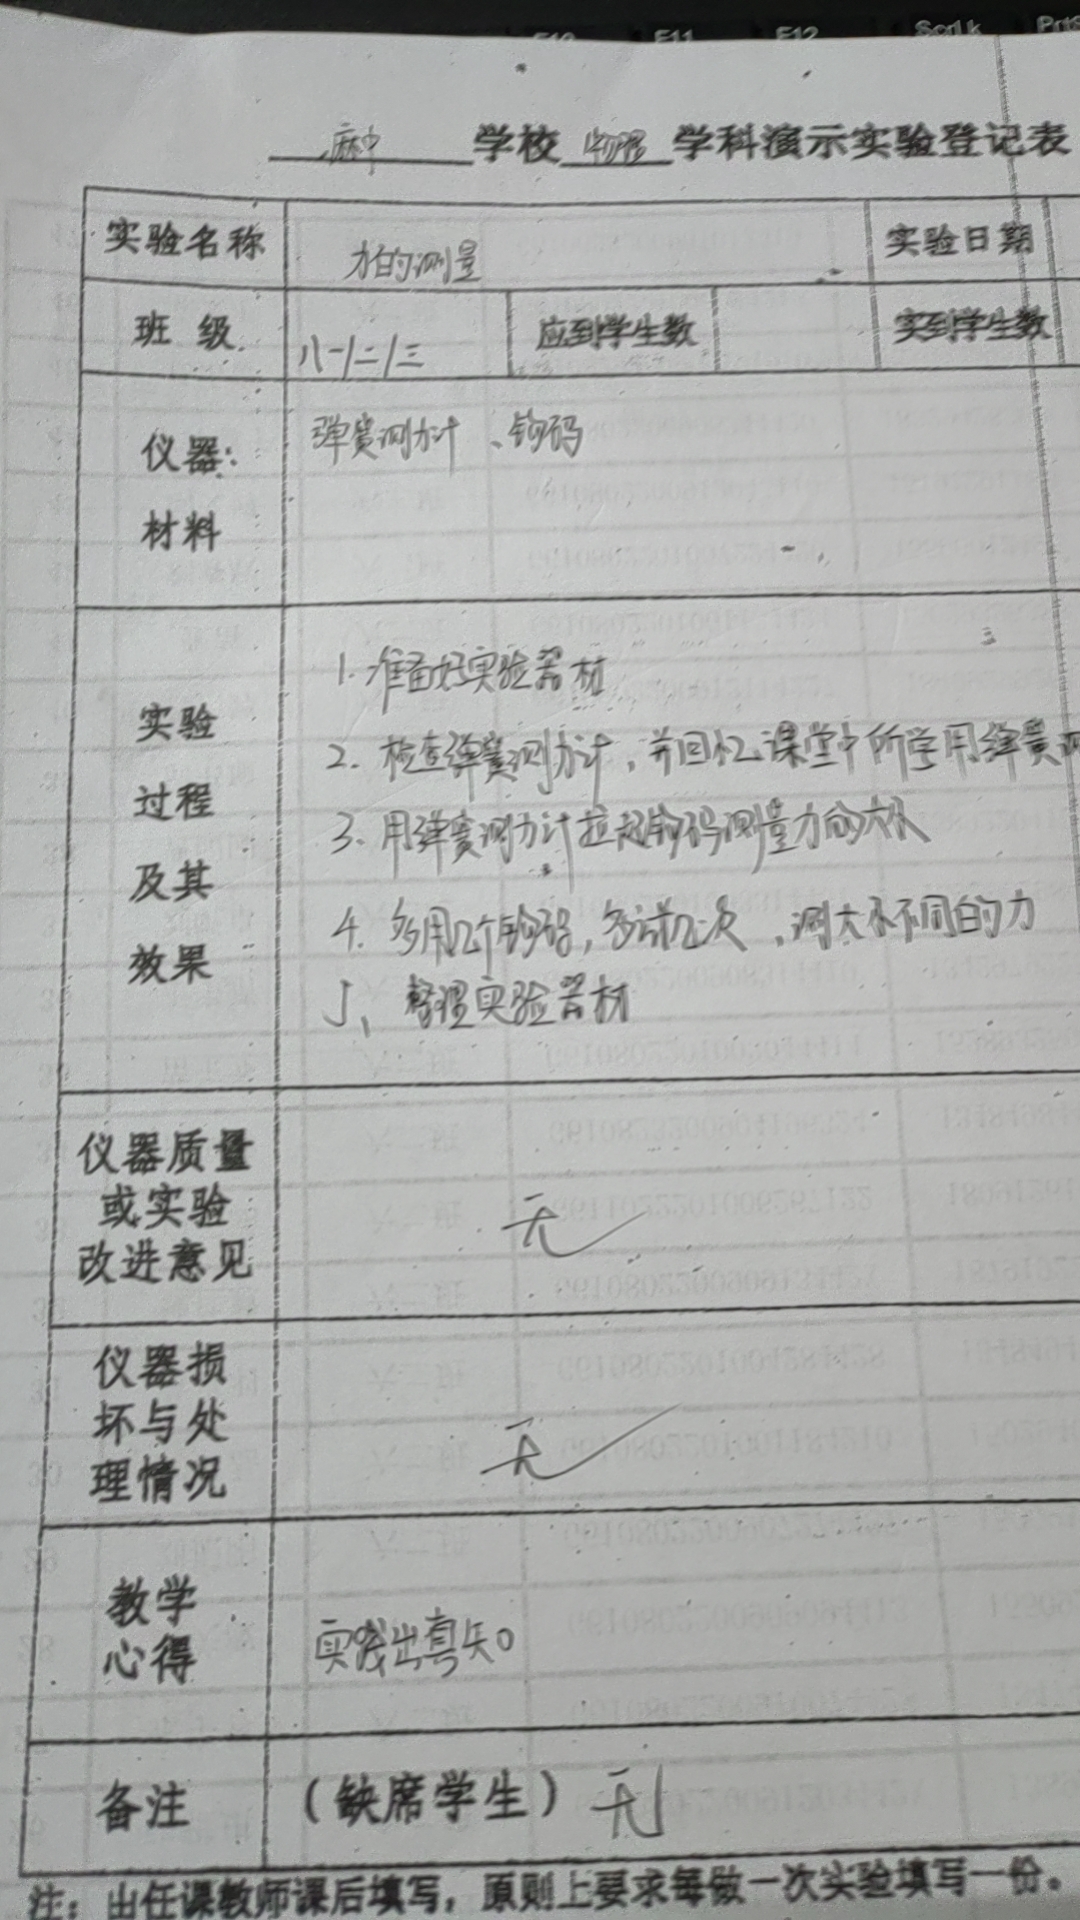 F10 F11 F12 ScrLk PrtS
麻中 学校 物理 学科演示实验登记表
实验名称 力的测量 实验日期
班 级 八一/二/三 应到学生数 实到学生数
仪器: 弹簧测力计、钩码
材料
实验 1. 准备好实验器材
过程 2. 检查弹簧测力计,并回忆课堂中所学用弹簧测
及其 3. 用弹簧测力计拉起钩码测量力的
效果 4. 多用几个钩码,多试几次,测大小不同的力
5、整理实验器材
仪器质量
或实验 无
改进意见
仪器损
坏与处 无
理情况
教学
心得 实践出真知。
备注 (缺席学生) 无
注:由任课教师课后填写,原则上要求每做一次实验填写一份。